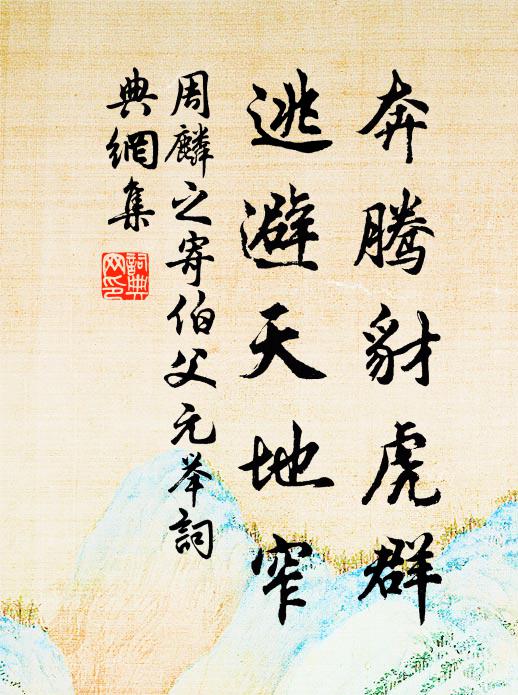 奔腾豺虎群
逃避天地窄
周麟之寄伯父元举詞
典網集
詞典
网印